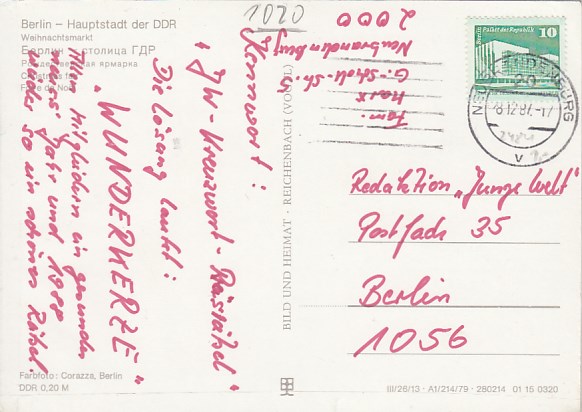 Berlin – Hauptstadt der DDR
Weihnachtsmarkt
Берлин – столица ГДР
Рождественская ярмарка
Christmas fair
Foire de Noël
1020
Kennwort:
„JW-Kreuzwort-Rätsel“
Die Lösung lautet:
„WUNDERKERZE“
Allen Mitgliedern ein gesundes
neues Jahr und 1988
wieder so ein schönes Rätsel.
Farbfoto: Corazza, Berlin
DDR 0,20 M
BILD UND HEIMAT · REICHENBACH (VOGTL)
Fam.
Marx
G.-Scholl-Str. 5
Neubrandenburg
2000
Berlin Palast der Republik
10
DDR
NEUBRANDENBURG
28.12.87.-17
V
Redaktion „Junge Welt“
Postfach 35
Berlin
1056
III/26/13 · A1/214/79 · 280214 01 15 0320